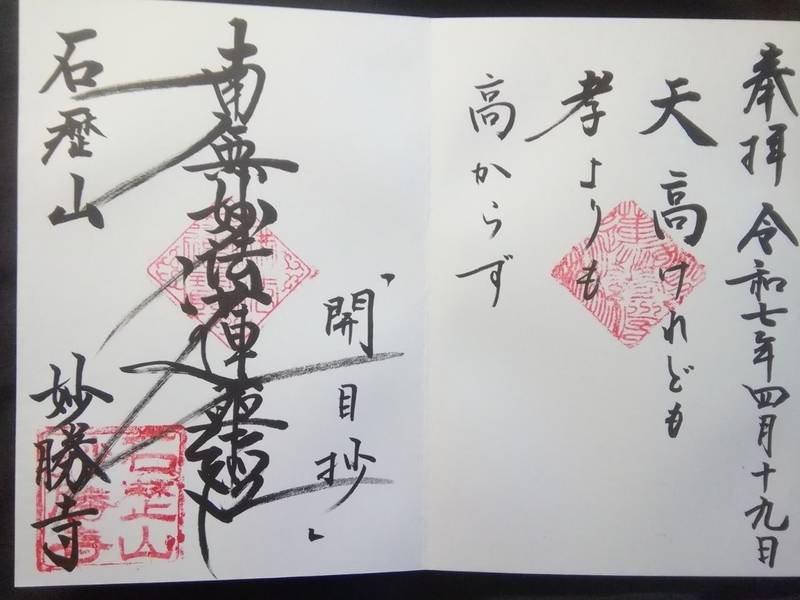 奉拝 令和七年四月十九日
天高けれども
孝よりも
高からず
「開目抄」
南無妙法蓮華経
石歴山 妙勝寺
石歴山